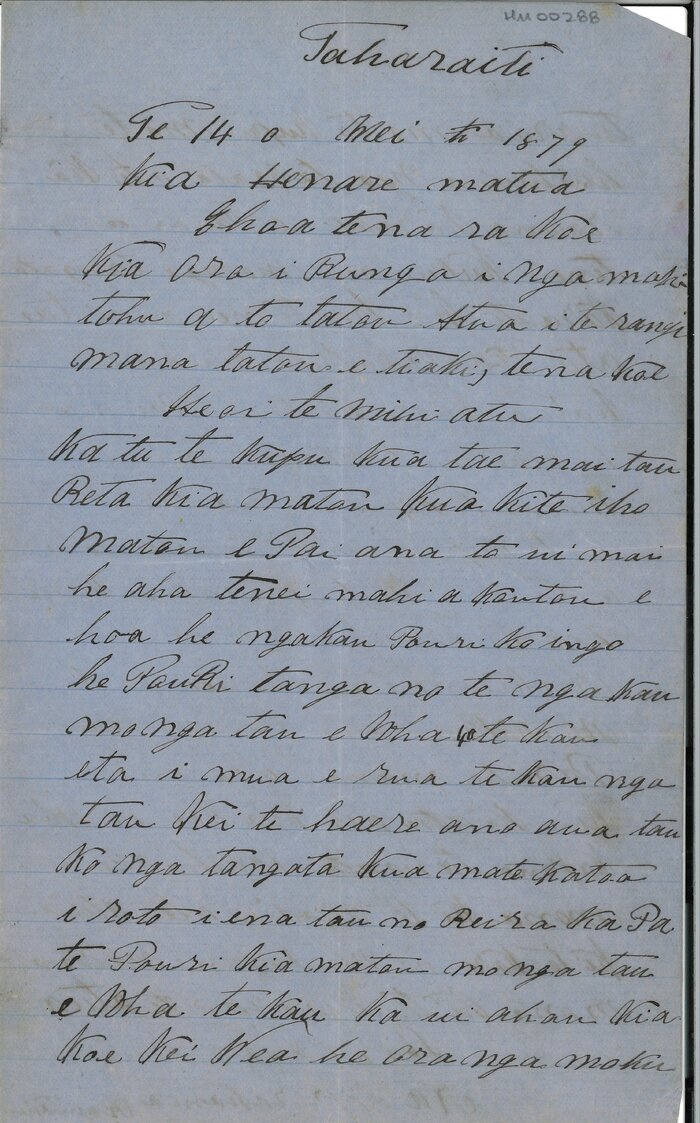 HM00288
Taharaiti
Te 14 o Mei 1879
Kia Henare matua
Ehoa tena ra Koe
Kia ora i Runga i nga mahi
tohu a to tatou Atua i te rangi
mana tatou e tiaki, tena Koe
Heoi te mihi atu
Ka tu te Kupu Kua tae mai tau
Reta Kia matou Kua Kite iho
matou e Pai ana to ui mai
he aha tenei mahi a Koutou e
hoa he ngakau Pouri Ko ingo
he PouRi tanga no te nga Kau
mo nga tau e Wha 40 te Kau
eta i mua e rua te Kau nga
tau Kei te haere ano aua tau
Ko nga tangata Kua mate Katoa
i roto i ena tau no Reira Ka Pa
te Pouri Kia matou mo nga tau
e Wha te Kau Ka ui ahau Kia
Koe Kei Wea he oranga moku